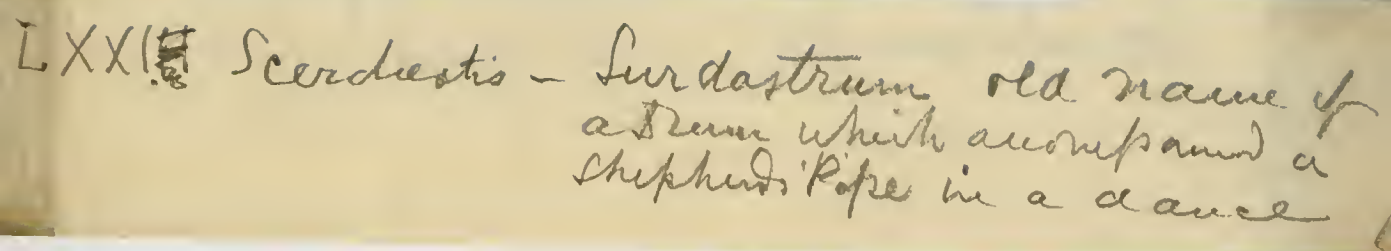 LXXI Scerdestis - Surdastrum old name of
a Drum which accompanied a
Shepherds' Pipe in a dance